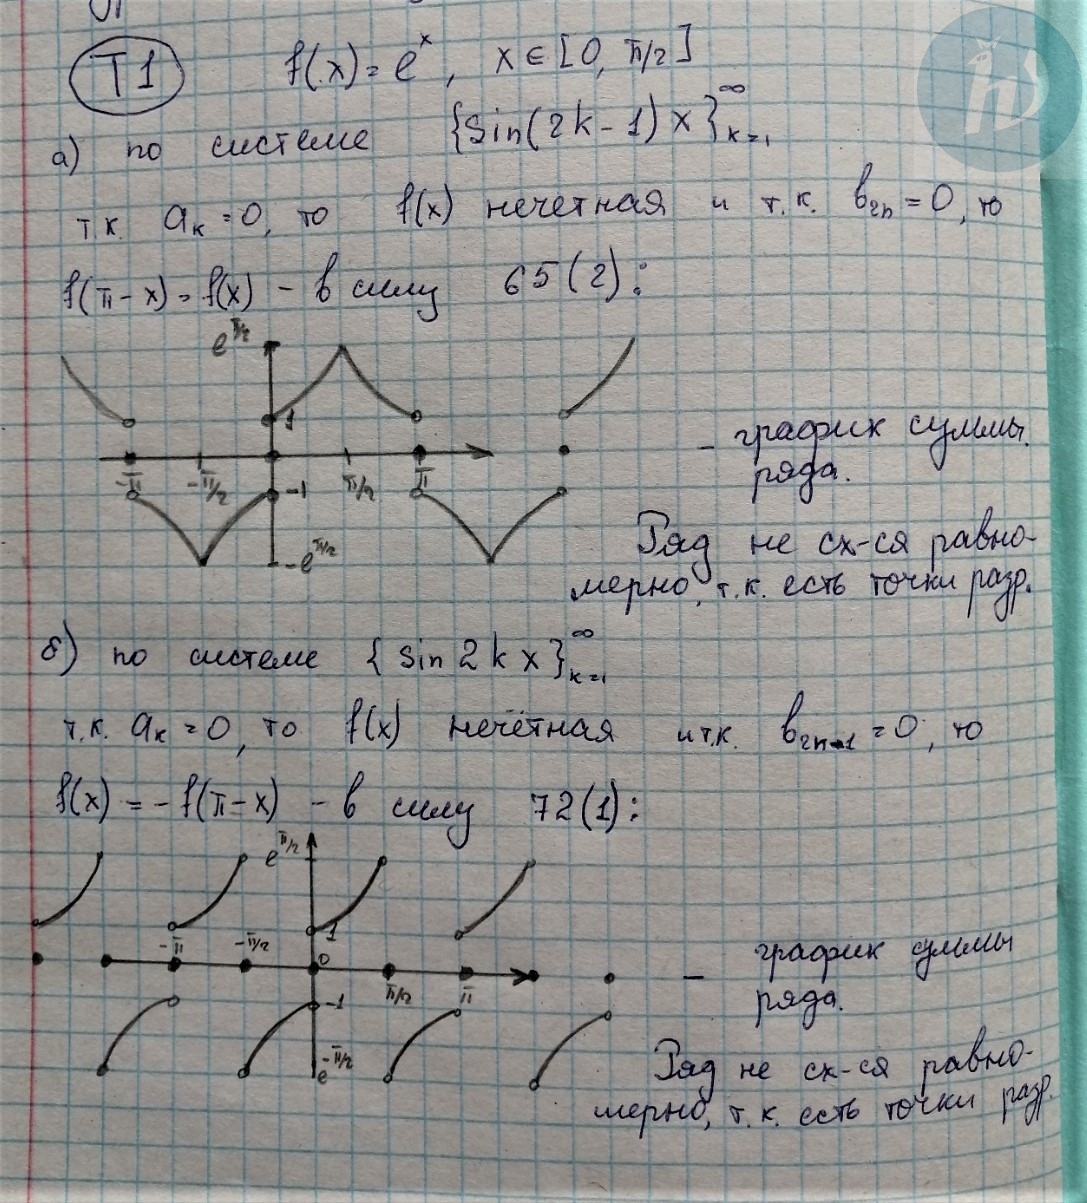 T1 f(x) = e^x, x ∈ [0, π/2]
а) по системе {sin(2k-1)x}_{k=1}^∞
т.к. a_k = 0, то f(x) нечетная и т.к. b_{2n} = 0, то
f(π-x) = f(x) - в силу 65(2):
e^{π/2}
1
-π -π/2 -1 π/2 π
-e^{π/2}
- график суммы
ряда.
Ряд не сх-ся равно-
мерно, т.к. есть точки разр.
б) по системе {sin 2kx}_{k=1}^∞
т.к. a_k = 0, то f(x) нечётная и т.к. b_{2n-1} = 0, то
f(x) = -f(π-x) - в силу 72(1):
e^{π/2}
1
-π -π/2 0 π/2 π
-1
e^{-π/2}
- график суммы
ряда.
Ряд не сх-ся равно-
мерно, т.к. есть точки разр.